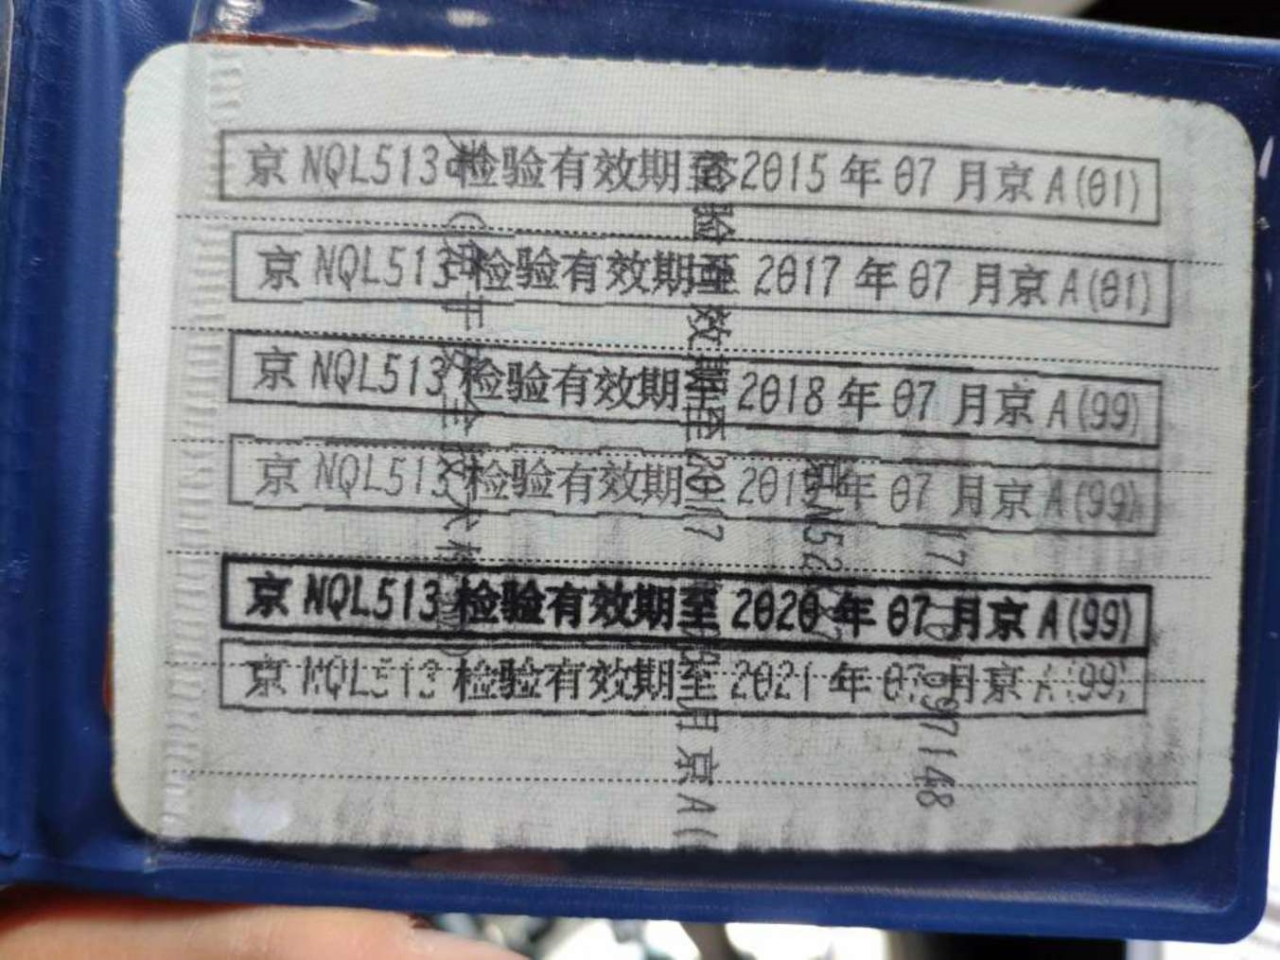 京NQL513 检验有效期至2015年07月京A(01)
京NQL513 检验有效期至2017年07月京A(01)
京NQL513 检验有效期至2018年07月京A(99)
京NQL513 检验有效期至2019年07月京A(99)
京NQL513 检验有效期至2020年07月京A(99)
京NQL513 检验有效期至2021年07月京A(99)